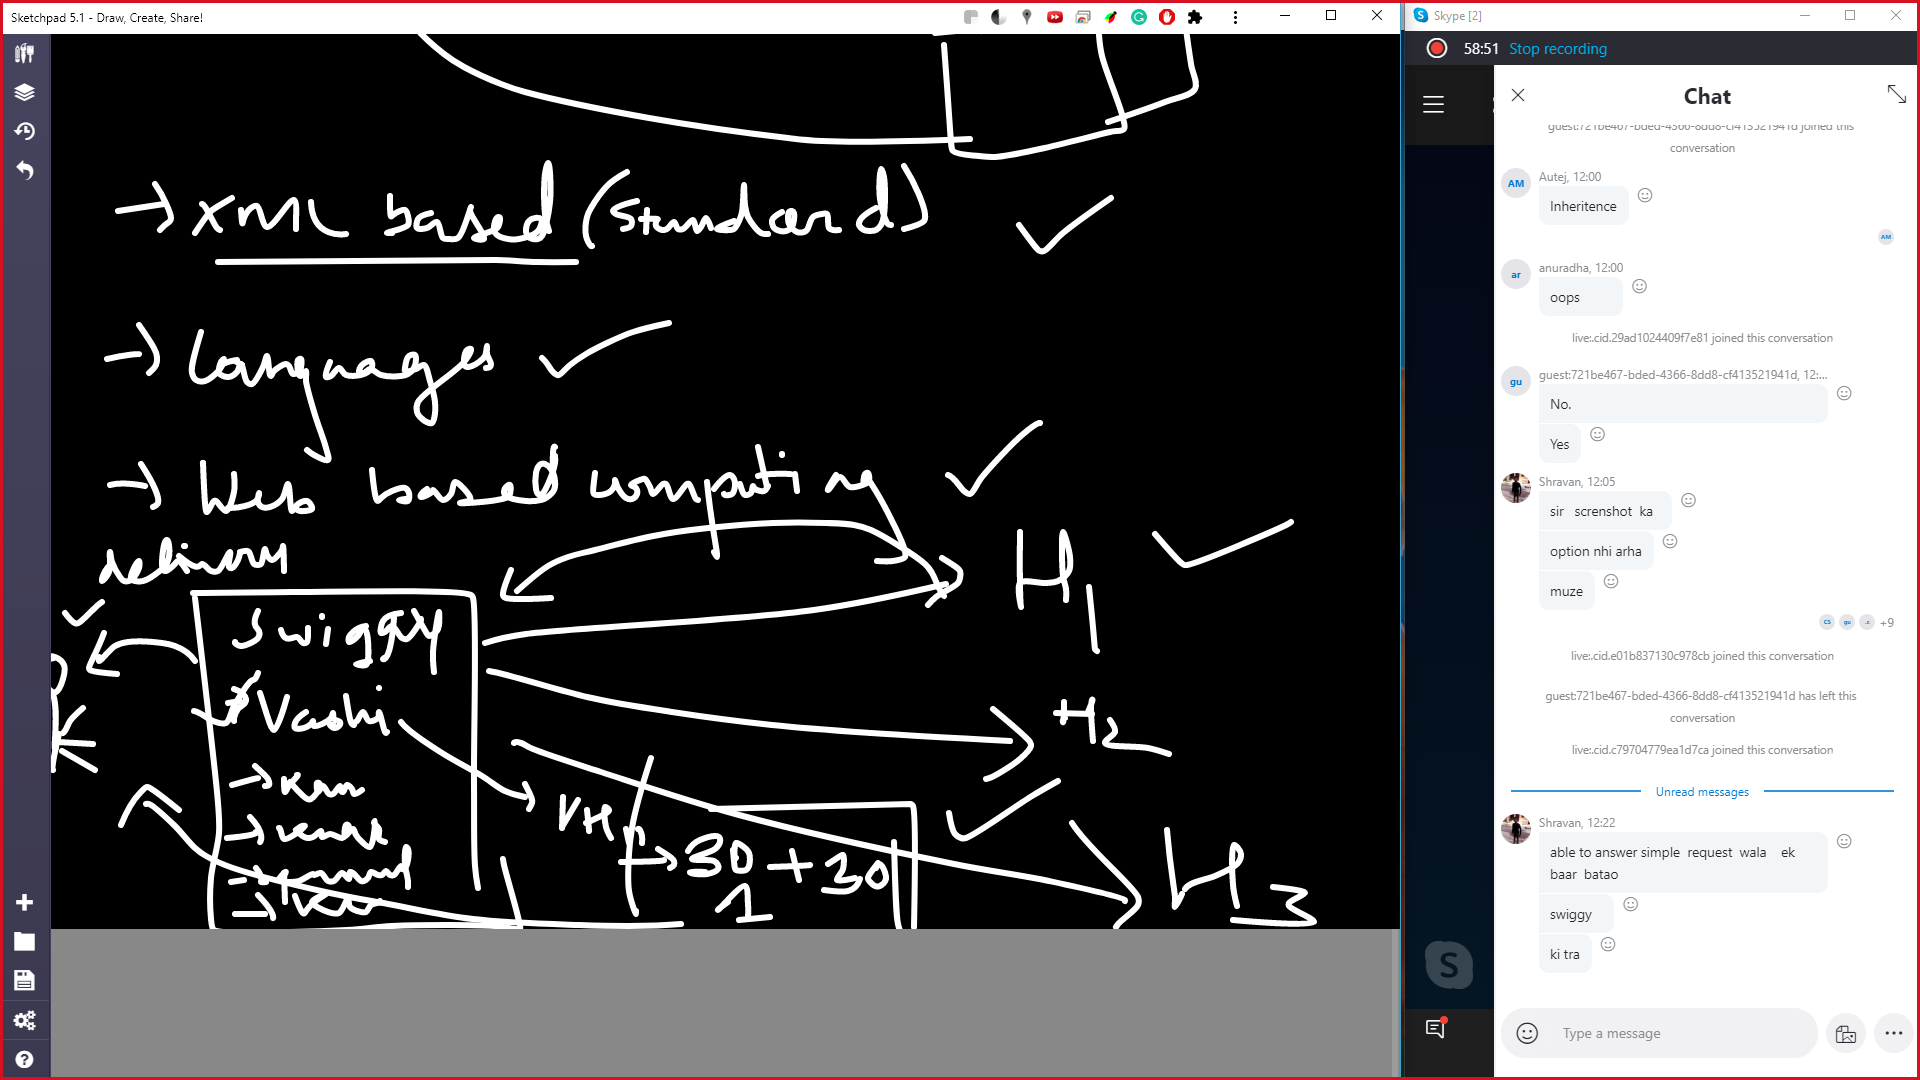 Sketchpad 5.1 - Draw, Create, Share!
→ XML based (Standard)
→ Languages
→ Web based computing
delivery
Swiggy
Vashi
H1
H2
H3
VH
→ 30 + 30
1
Skype [2]
58:51 Stop recording
Chat
guest:721be467-bded-4366-8dd8-cf413521941d joined this
conversation
AM
Autej, 12:00
Inheritence
AM
ar
anuradha, 12:00
oops
live:.cid.29ad1024409f7e81 joined this conversation
gu
guest:721be467-bded-4366-8dd8-cf413521941d, 12:...
No.
Yes
Shravan, 12:05
sir screnshot ka
option nhi arha
muze
CS gu .c +9
live:.cid.e01b837130c978cb joined this conversation
guest:721be467-bded-4366-8dd8-cf413521941d has left this
conversation
live:.cid.c79704779ea1d7ca joined this conversation
Unread messages
Shravan, 12:22
able to answer simple request wala ek
baar batao
swiggy
ki tra
Type a message